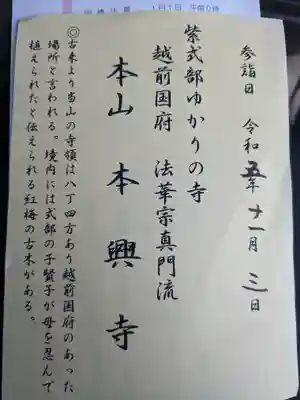 参詣日　令和五年十一月三日
紫式部ゆかりの寺
越前国府　法華宗真門流
本山本興寺
◎古来より当山の寺領は八丁四方あり越前国府のあった
場所と言われる。境内には式部の子賢子が母を忍んで
植えられたと伝えられる紅梅の古木がある。